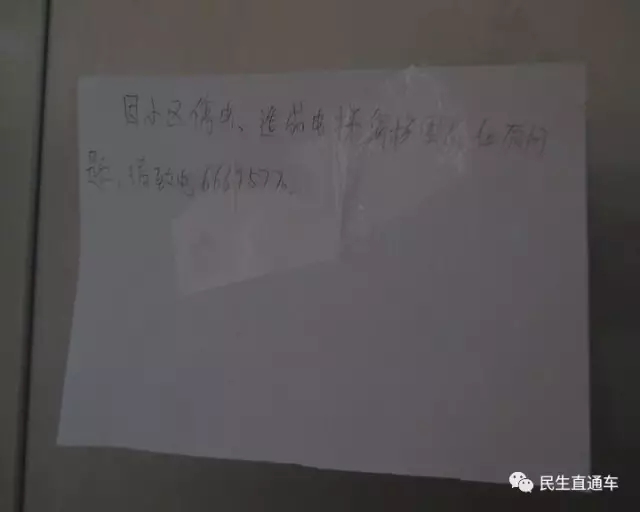 因小区停电、造成电梯停 有问
题,请致电66695
民生直通车